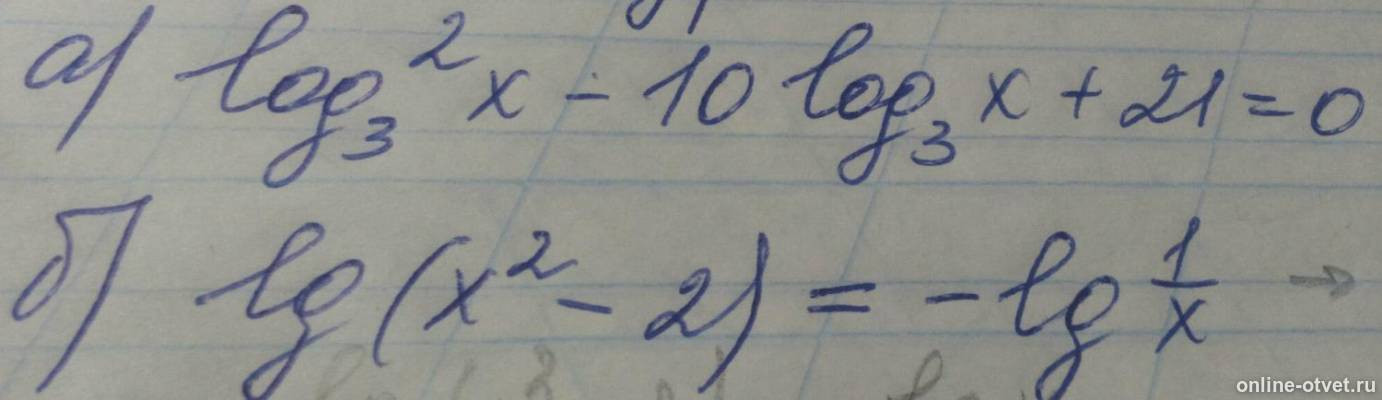 а) log₃² x - 10 log₃ x + 21 = 0
б) lg (x² - 2) = - lg 1/x →
online-otvet.ru